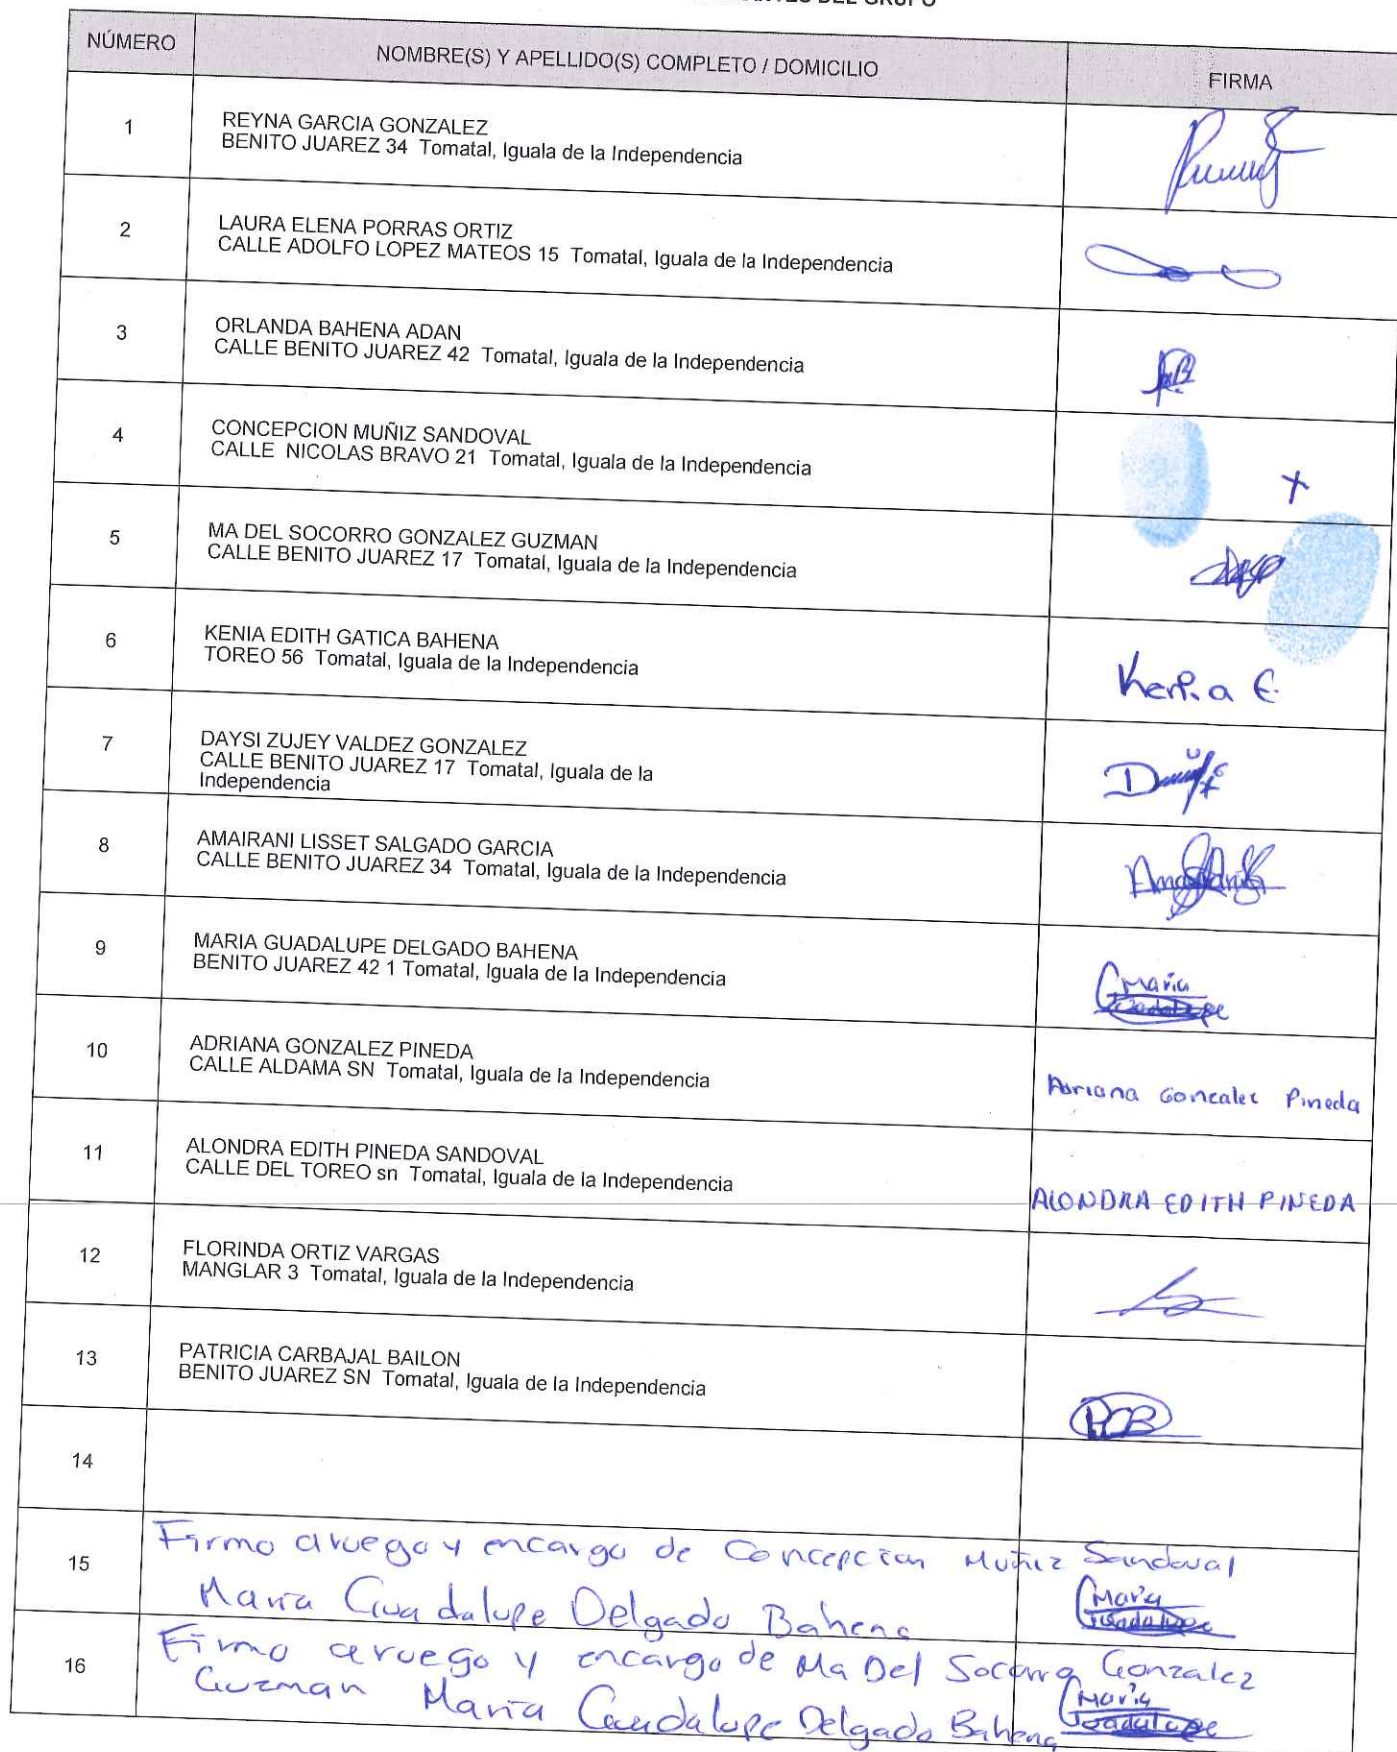 DEL GRUPO
NÚMERO NOMBRE(S) Y APELLIDO(S) COMPLETO / DOMICILIO FIRMA
1 REYNA GARCIA GONZALEZ
BENITO JUAREZ 34 Tomatal, Iguala de la Independencia
2 LAURA ELENA PORRAS ORTIZ
CALLE ADOLFO LOPEZ MATEOS 15 Tomatal, Iguala de la Independencia
3 ORLANDA BAHENA ADAN
CALLE BENITO JUAREZ 42 Tomatal, Iguala de la Independencia
4 CONCEPCION MUÑIZ SANDOVAL
CALLE NICOLAS BRAVO 21 Tomatal, Iguala de la Independencia
X
5 MA DEL SOCORRO GONZALEZ GUZMAN
CALLE BENITO JUAREZ 17 Tomatal, Iguala de la Independencia
6 KENIA EDITH GATICA BAHENA
TOREO 56 Tomatal, Iguala de la Independencia
Kenia E.
7 DAYSI ZUJEY VALDEZ GONZALEZ
CALLE BENITO JUAREZ 17 Tomatal, Iguala de la
Independencia
8 AMAIRANI LISSET SALGADO GARCIA
CALLE BENITO JUAREZ 34 Tomatal, Iguala de la Independencia
9 MARIA GUADALUPE DELGADO BAHENA
BENITO JUAREZ 42 1 Tomatal, Iguala de la Independencia
Maria
Guadalupe
10 ADRIANA GONZALEZ PINEDA
CALLE ALDAMA SN Tomatal, Iguala de la Independencia
Adriana Gonzalez Pineda
11 ALONDRA EDITH PINEDA SANDOVAL
CALLE DEL TOREO sn Tomatal, Iguala de la Independencia
ALONDRA EDITH PINEDA
12 FLORINDA ORTIZ VARGAS
MANGLAR 3 Tomatal, Iguala de la Independencia
13 PATRICIA CARBAJAL BAILON
BENITO JUAREZ SN Tomatal, Iguala de la Independencia
PCB
14
15 Firmo aruego y encargo de Concepcion Muñiz Sandoval
Maria Guadalupe Delgado Bahena
Maria
Guadalupe
16 Firmo aruego y encargo de Ma Del Socorro Gonzalez
Guzman Maria Guadalupe Delgado Bahena
Maria
Guadalupe